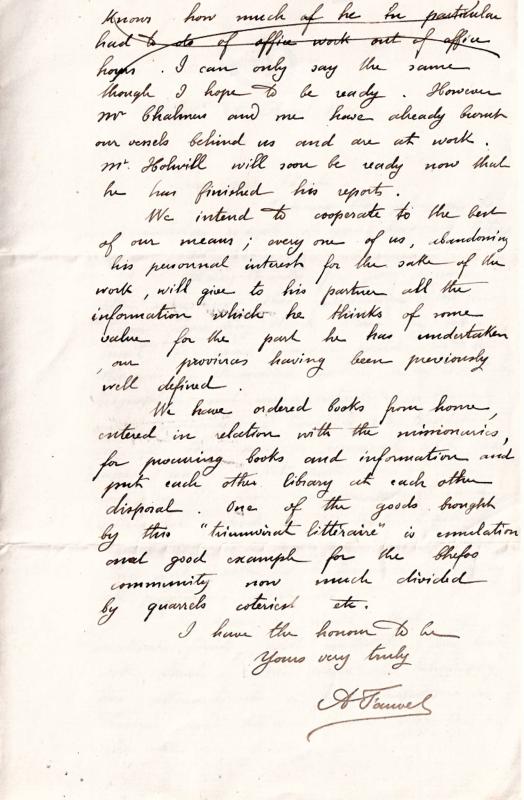 knows how much of he in particular
had to do of office work out of office
hours. I can only say the same
though I hope to be ready. However
Mr Chalmers and me have already burnt
our vessels behind us and are at work.
Mr. Holwill will soon be ready now that
he has finished his reports.
We intend to cooperate to the best
of our means; every one of us, abandoning
his personnal interest for the sake of the
work, will give to his partner all the
information which he thinks of some
value for the part he has undertaken
, our provinces having been previously
well defined.
We have ordered books from home,
entered in relation with the missionaries,
for procuring books and information and
put each other library at each other
disposal. One of the goods brought
by this "triumvirat littéraire" is emulation
and good example for the Chefoo
community now much divided
by quarrels coteries etc.
I have the honour to be
Yours very truly
A Fauvel